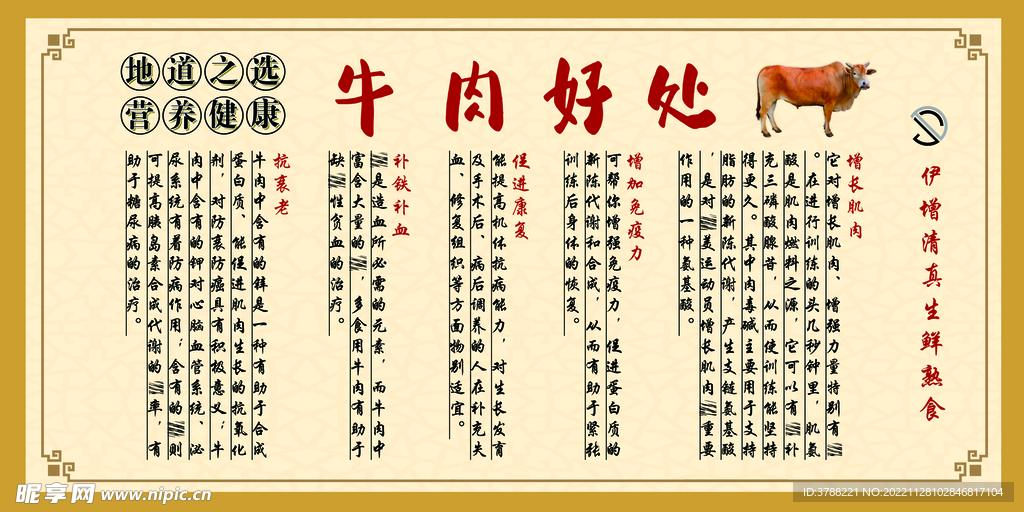 地道之选
营养健康
牛肉好处
伊增清真生鲜熟食
增长肌肉
它对增长肌肉、增强力量特别有
。在进行训练的头几秒钟里，肌氨
酸是肌肉燃料之源，它可以有补
充三磷酸腺苷，从而使训练能坚持
得更久。其中肉毒碱主要用于支持
脂肪的新陈代谢，产生支链氨基酸
，是对美运动员增长肌肉重要
作用的一种氨基酸。
增加免疫力
可帮你增强免疫力，促进蛋白质的
新陈代谢和合成，从而有助于紧张
训练后身体的恢复。
促进康复
能提高机体抗病能力，对生长发育
及手术后、病后调养的人在补充失
血、修复组织等方面物别适宜。
补铁补血
是造血所必需的元素，而牛肉中
富含大量的，多食用牛肉有助于
缺性贫血的治疗。
抗衰老
牛肉中含有的锌是一种有助于合成
蛋白质、能促进肌肉生长的抗氧化
剂，对防衰防癌具有积极意义；牛
肉中含有的钾对心脑血管系统、泌
尿系统有着防病作用；含有的则
可提高胰岛素合成代谢的率，有
助于糖尿病的治疗。
昵享网 www.nipic.cn
ID:3788221 NO:20221128102846817104